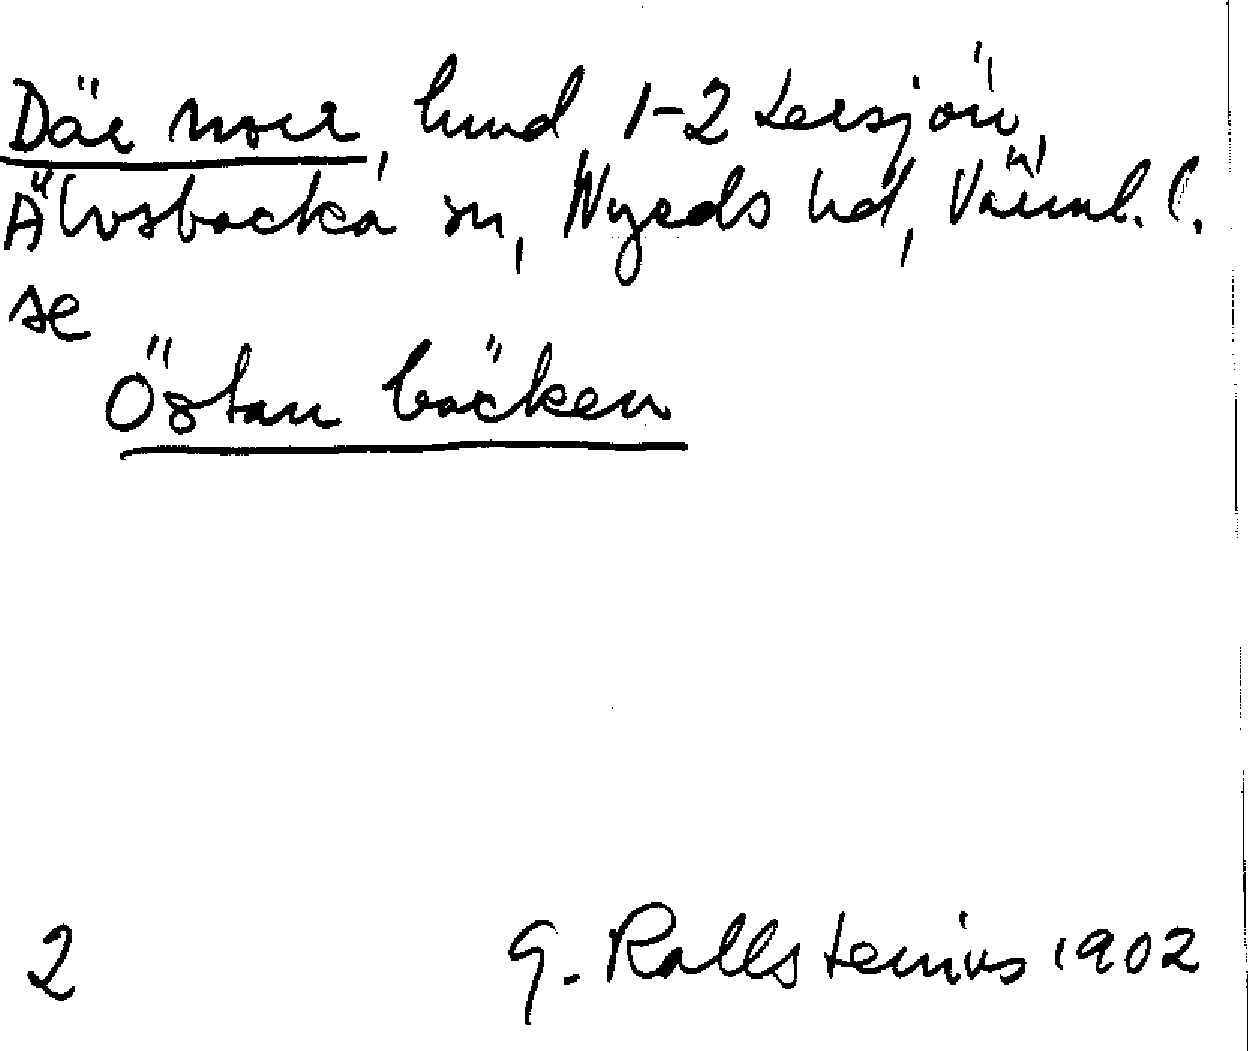 Där norr, lund, 1-2 Lersjön,
Älvsbacka sn, Nyeds hd, Värml. l.
se
Östan bäcken
2 G. Kallstenius 1902